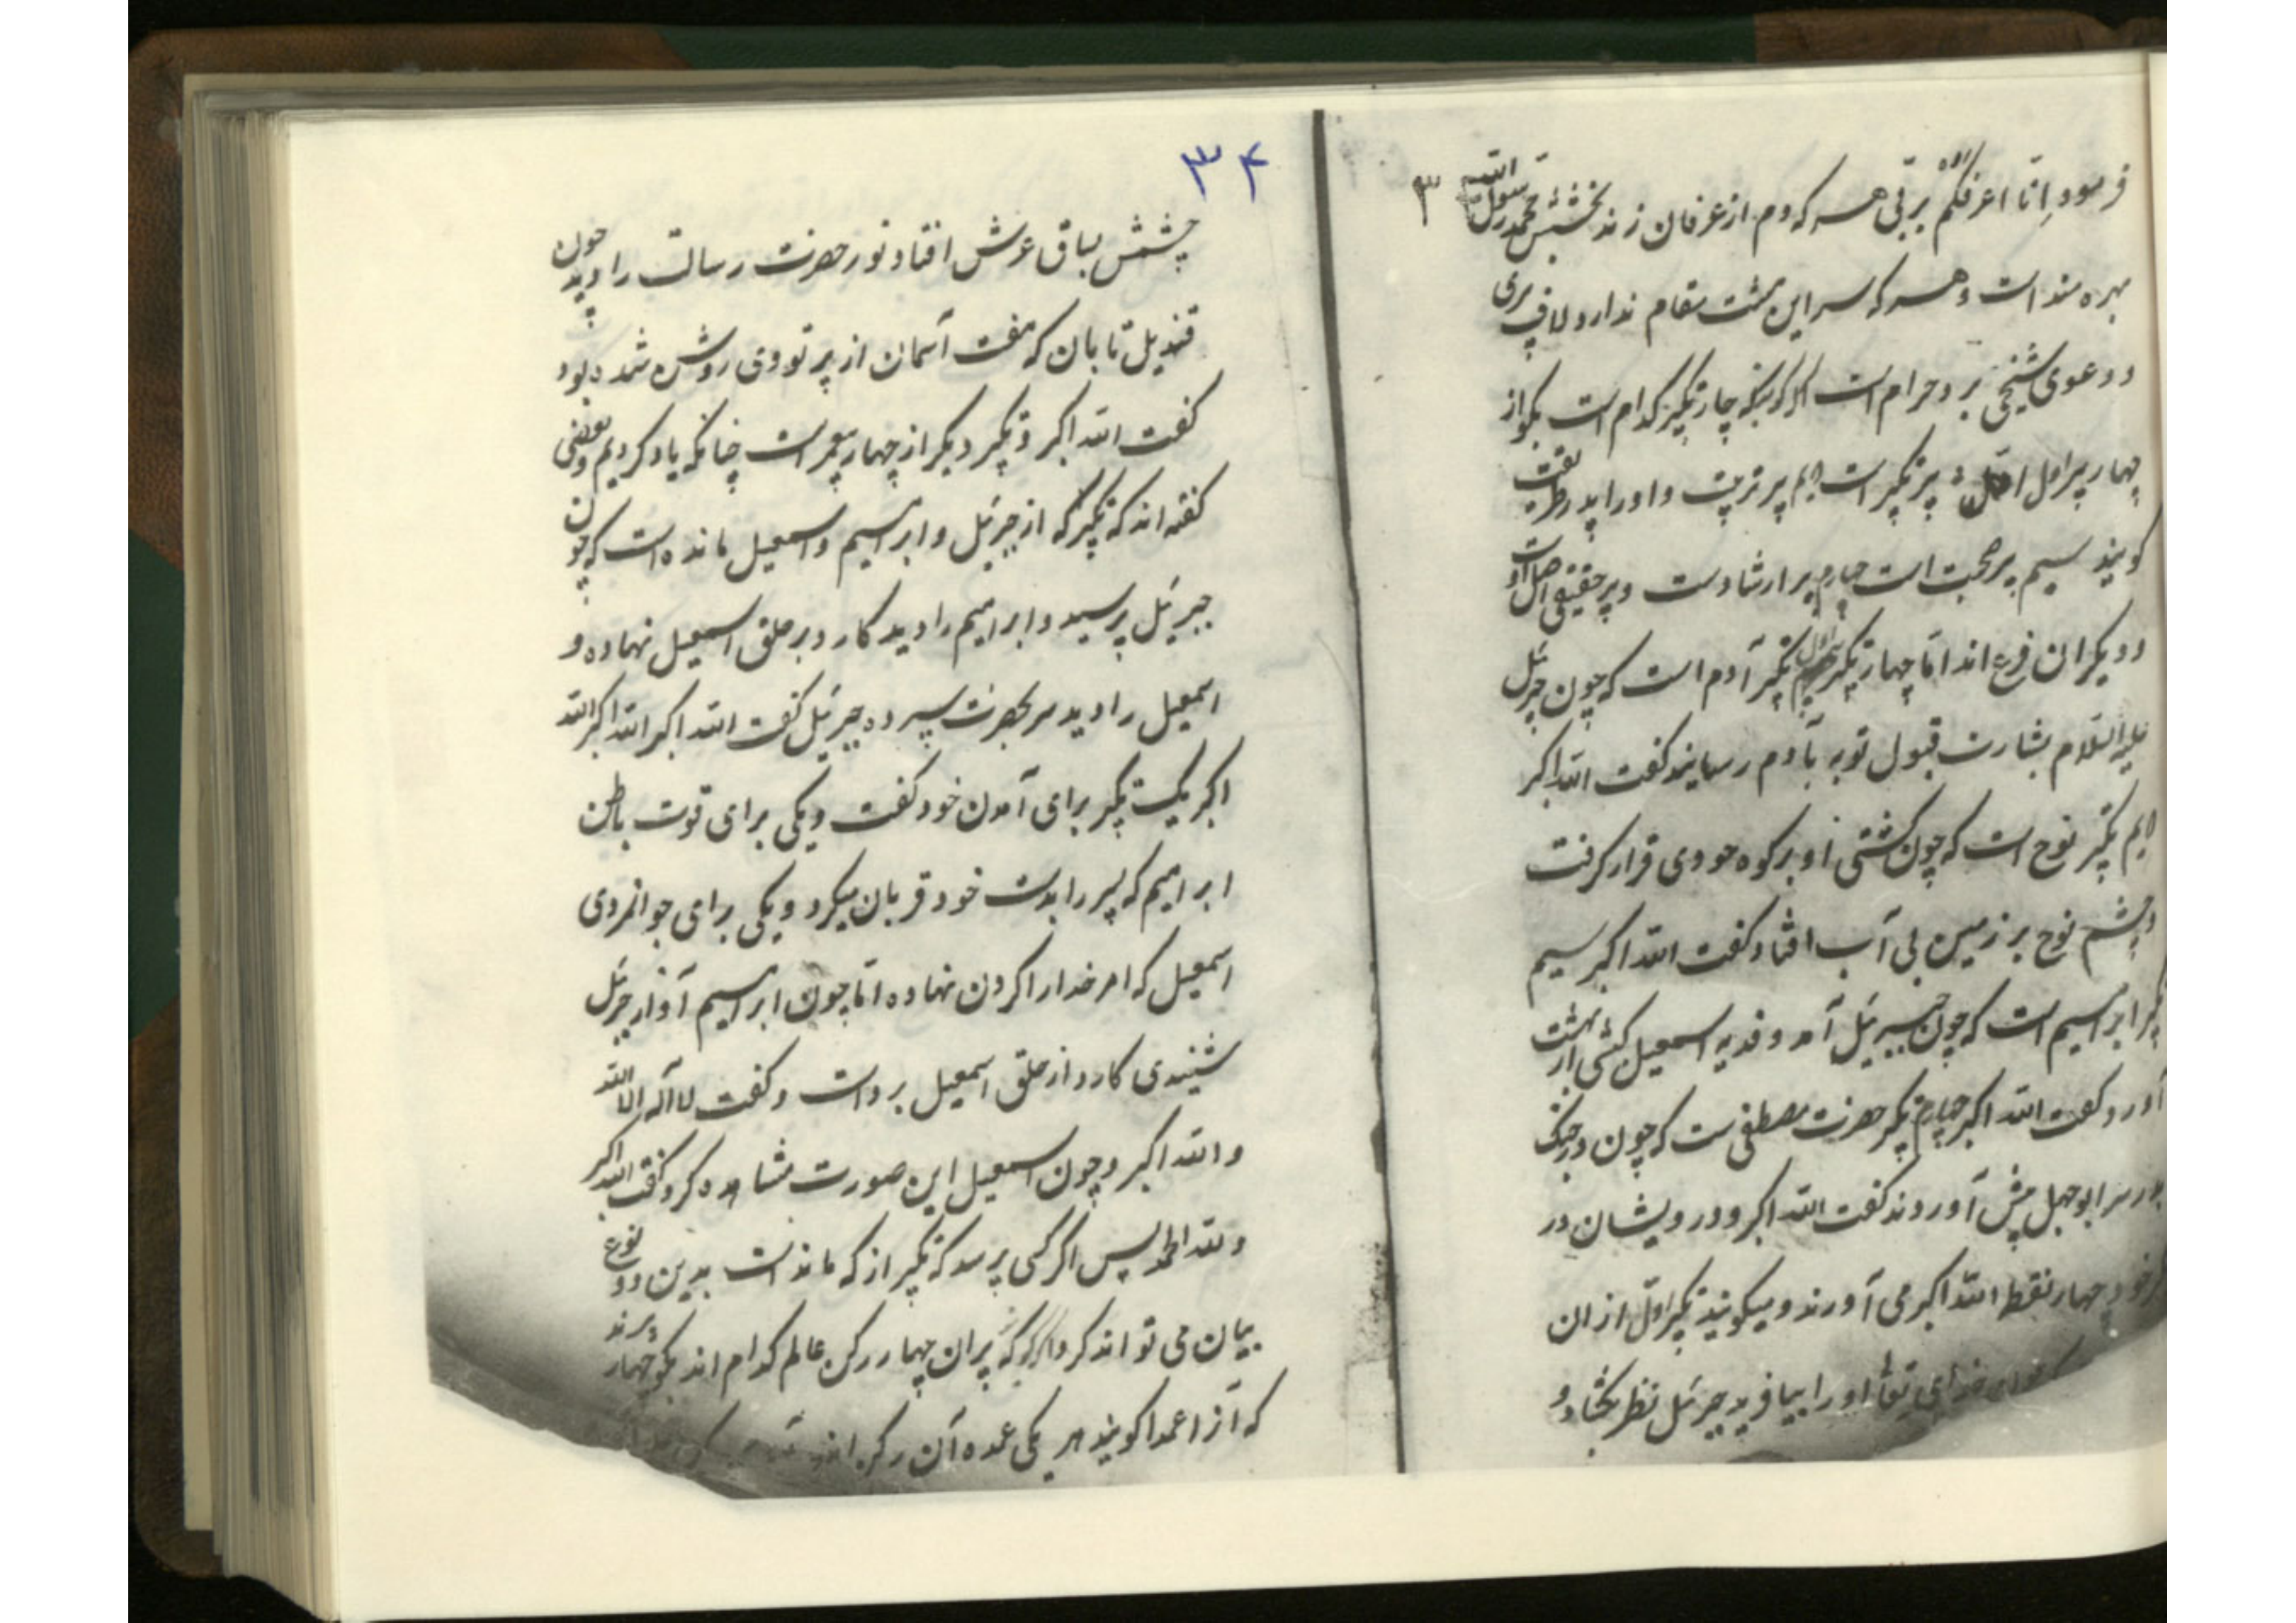 فرمود انا اعرفکم بربی هر که دم از عرفان زند بخشش محمد رسول الله
۳
بهره مند است و هر که سر این هشت مقام ندارد لاف پیری
و دعوی شیخی بر و حرام است اگر کویند که چار تکبیر کدام است بکو از
چهار پیر اول پیر تکبیر است دیم پیر تربیت و او را پدر طریقت
کویند سیم پیر صحبت است چهارم پیر ارشادست و پیر حقیقی اصل است
و دیکران فرع اند اما چهار تکبیر اول تکبیر آدم است که چون جبرئیل
علیه السلام بشارت قبول توبه بآدم رسانید کفت الله اکبر
دیم تکبیر نوح است که چون کشتی او بر کوه جودی قرار کرفت
و چشم نوح بر زمین بی آب افتاد کفت الله اکبر سیم
تکبیر ابراهیم است که چون جبرئیل آمد و فدیه اسمعیل کبشی از بهشت
آورد کفت الله اکبر چهارم تکبیر حضرت مصطفی ست که چون در جنک
بدر سر ابوجهل پیش آوردند کفت الله اکبر و درویشان در
خود چهار نقط الله اکبر می آورند و میکویند تکبیر اول از ان
خدای تعالی او را بیافرید جبرئیل نظر بکشاد و
۳۴
چشمش بساق عرش افتاد نور حضرت رسالت را دید چون
قندیل تابان که هفت آسمان از پرتو وی روشن شده بود
کفت الله اکبر و تکبیر دیکر از چهار پیغمبر است چنانکه یاد کردیم و بعضی
کفته اند که تکبیر که از جبرئیل و ابراهیم و اسمعیل مانده است که چون
جبرئیل برسید و ابراهیم را دید کارد بر حلق اسمعیل نهاده و
اسمعیل را دید سر بحضرت سپرده جبرئیل کفت الله اکبر الله اکبر الله
اکبر یک تکبیر برای آمدن خود کفت و یکی برای قوت باطن
ابراهیم که پسر را بدست خود قربان میکرد و یکی برای جوانمردی
اسمعیل که امر خدا را کردن نهاده اما چون ابراهیم آواز جبرئیل
شنیدی کارد از حلق اسمعیل برداشت و کفت لا اله الا الله
و الله اکبر و چون اسمعیل این صورت مشاهده کرد کفت الله اکبر
و لله الحمد پس اکر کسی پرسد که تکبیر از که ماندست بدین دو نوع
بیان می تواند کرد اکر پرسند که پیران چهار رکن عالم کدام اند بکو چهار
که آنرا عمدا کویند هر یکی عمده آن رکن اند